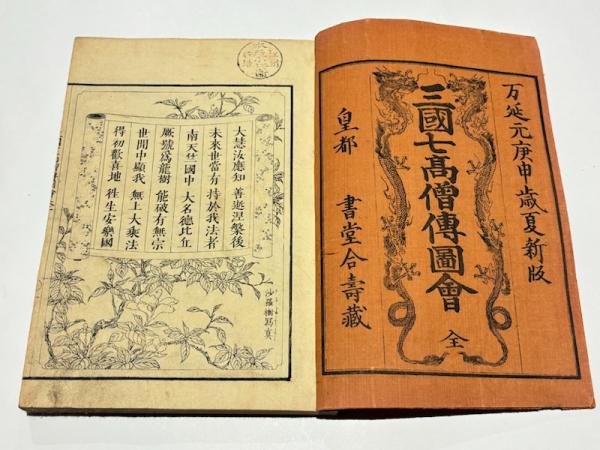 万延元庚申歳夏新版
三國七高僧傳圖會 全
皇都 書堂合壽藏
大慧汝應知 善逝涅槃後
未來世當有 持於我法者
南天竺國中 大名德比丘
厥號爲龍樹 能破有無宗
世間中顯我 無上大乘法
得初歡喜地 徃生安樂國
沙羅樹寫真